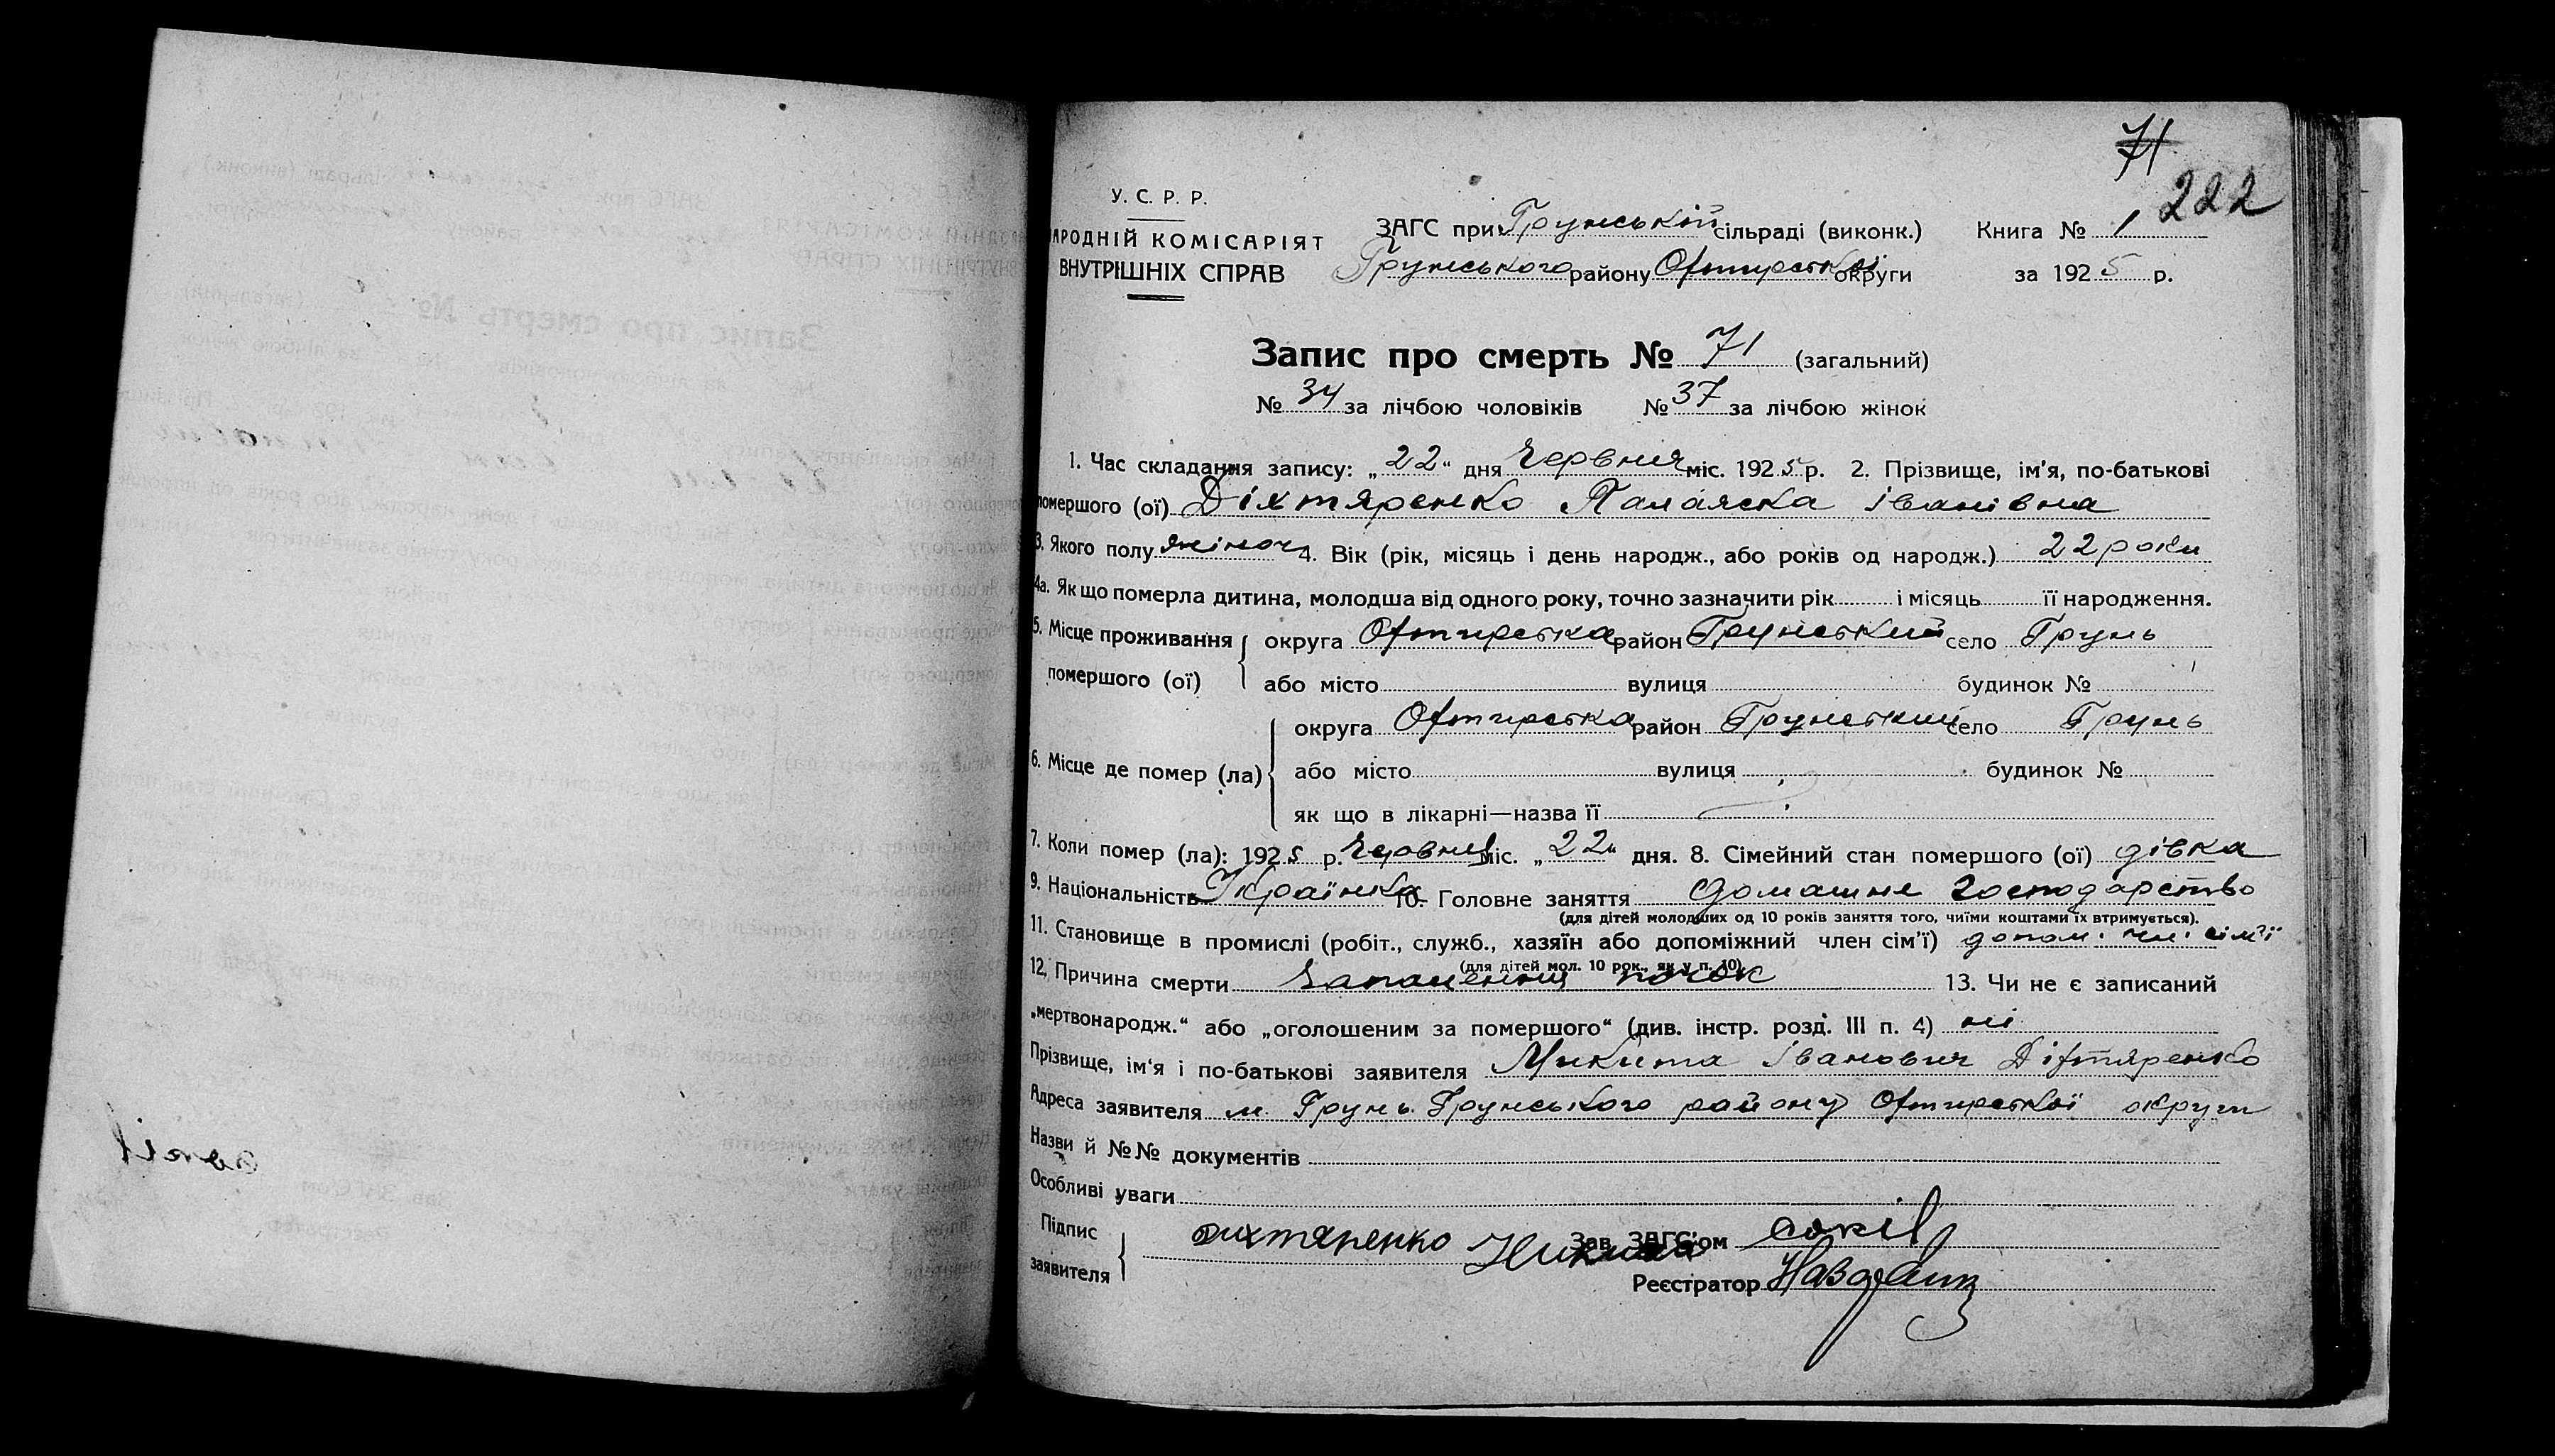 71
222
У. С. Р. Р.
НАРОДНІЙ КОМІСАРІЯТ
ВНУТРІШНІХ СПРАВ
ЗАГС при Грунській сільраді (виконк.) Книга № 1
Грунського району Охтирської округи за 1925 р.
Запис про смерть № 71 (загальний)
№ 34 за лічбою чоловіків № 37 за лічбою жінок
1. Час складання запису: „22“ дня Червня міс. 1925 р. 2. Прізвище, ім'я, по-батькові
помершого (ої) Діхтяренко Палажка Іванівна
3. Якого полу жіноч 4. Вік (рік, місяць і день народж., або років од народж.) 22 роки
4а. Як що померла дитина, молодша від одного року, точно зазначити рік і місяць її народження.
5. Місце проживання помершого (ої) округа Охтирська район Грунський село Грунь
або місто вулиця будинок №
6. Місце де помер (ла) округа Охтирська район Грунський село Грунь
або місто вулиця будинок №
як що в лікарні—назва її
7. Коли помер (ла): 1925 р. Червня міс. „22“ дня. 8. Сімейний стан помершого (ої) дівка
9. Національність Українка 10. Головне заняття домашнє господарство
(для дітей молодших од 10 років заняття того, чиїми коштами їх втримується).
11. Становище в промислі (робіт., служб., хазяїн або допоміжний член сім'ї) допом. чл. сім'ї
(для дітей мол. 10 рок., як у п. 10)
12. Причина смерти запалення почок 13. Чи не є записаний
„мертвонародж.“ або „оголошеним за помершого“ (див. інстр. розд. III п. 4) ні
Прізвище, ім'я і по-батькові заявителя Микита Іванович Діхтяренко
Адреса заявителя м. Грунь Грунського району Охтирської округи
Назви й №№ документів
Особливі уваги
Підпис заявителя Дихтяренко Никита Зав. ЗАГС'ом Сокіл
Реєстратор